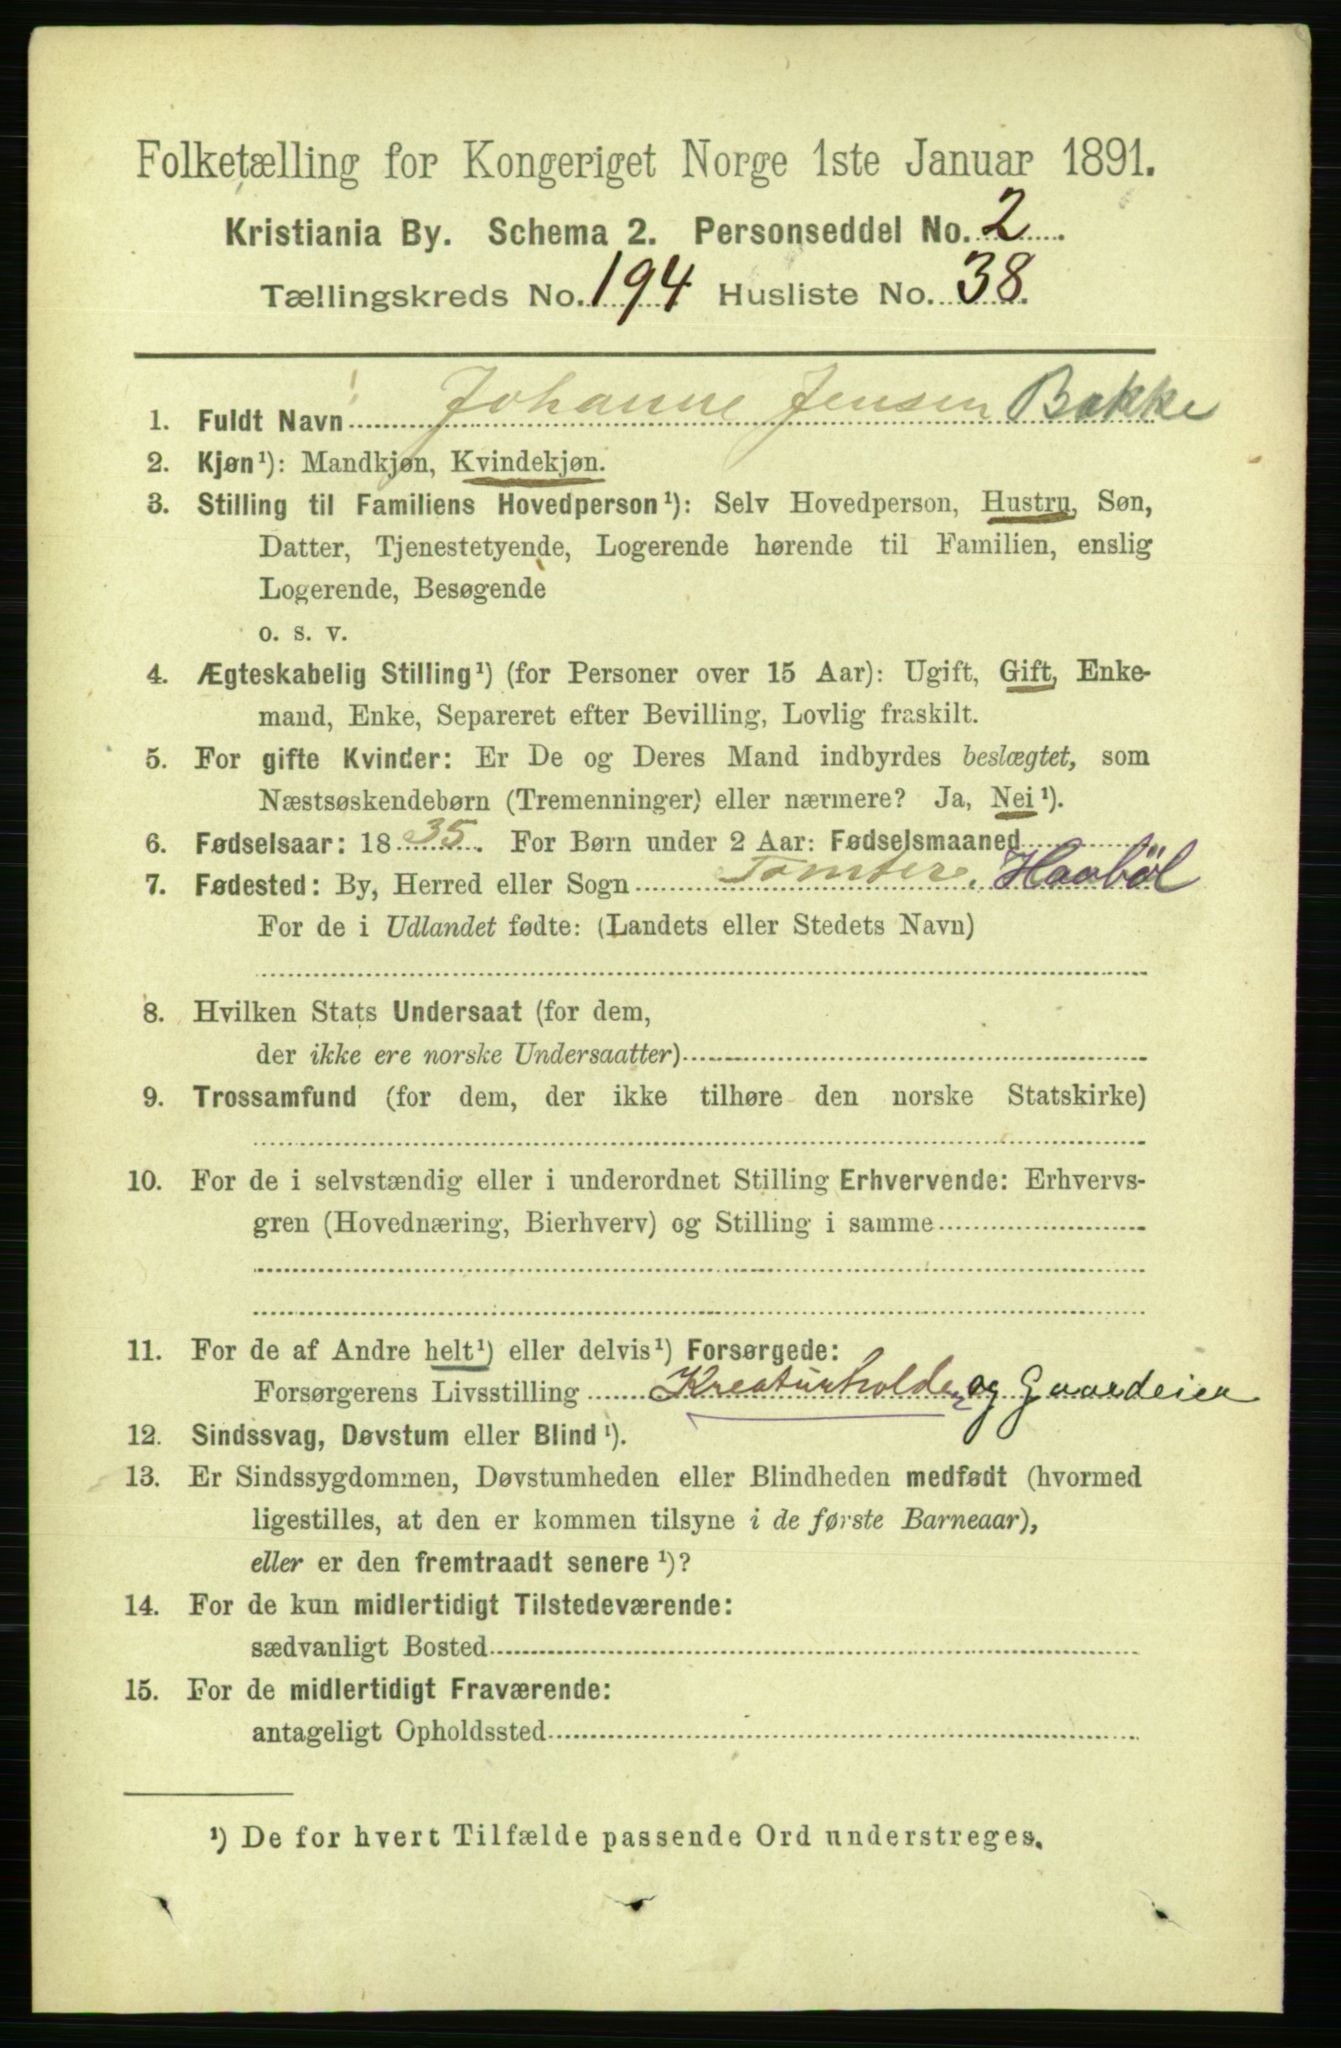 Folketælling for Kongeriget Norge 1ste Januar 1891.
Kristiania By. Schema 2. Personseddel No. 2
Tællingskreds No. 194 Husliste No. 38.
1. Fuldt Navn Johanne Jensen Bakke
2. Kjøn¹): Mandkjøn, Kvindekjøn.
3. Stilling til Familiens Hovedperson¹): Selv Hovedperson, Hustru, Søn,
Datter, Tjenestetyende, Logerende hørende til Familien, enslig
Logerende, Besøgende
o. s. v.
4. Ægteskabelig Stilling¹) (for Personer over 15 Aar): Ugift, Gift, Enke-
mand, Enke, Separeret efter Bevilling, Lovlig fraskilt.
5. For gifte Kvinder: Er De og Deres Mand indbyrdes beslægtet, som
Næstsøskendebørn (Tremenninger) eller nærmere? Ja, Nei¹).
6. Fødselsaar: 1835. For Børn under 2 Aar: Fødselsmaaned
7. Fødested: By, Herred eller Sogn Tomter. Haabøl
For de i Udlandet fødte: (Landets eller Stedets Navn)
8. Hvilken Stats Undersaat (for dem,
der ikke ere norske Undersaatter)
9. Trossamfund (for dem, der ikke tilhøre den norske Statskirke)
10. For de i selvstændig eller i underordnet Stilling Erhvervende: Erhvervs-
gren (Hovednæring, Bierhverv) og Stilling i samme
11. For de af Andre helt¹) eller delvis¹) Forsørgede:
Forsørgerens Livsstilling Kreaturholder og Gaardeier
12. Sindssvag, Døvstum eller Blind¹).
13. Er Sindssygdommen, Døvstumheden eller Blindheden medfødt (hvormed
ligestilles, at den er kommen tilsyne i de første Barneaar),
eller er den fremtraadt senere¹)?
14. For de kun midlertidigt Tilstedeværende:
sædvanligt Bosted
15. For de midlertidigt Fraværende:
antageligt Opholdssted
¹) De for hvert Tilfælde passende Ord understreges.